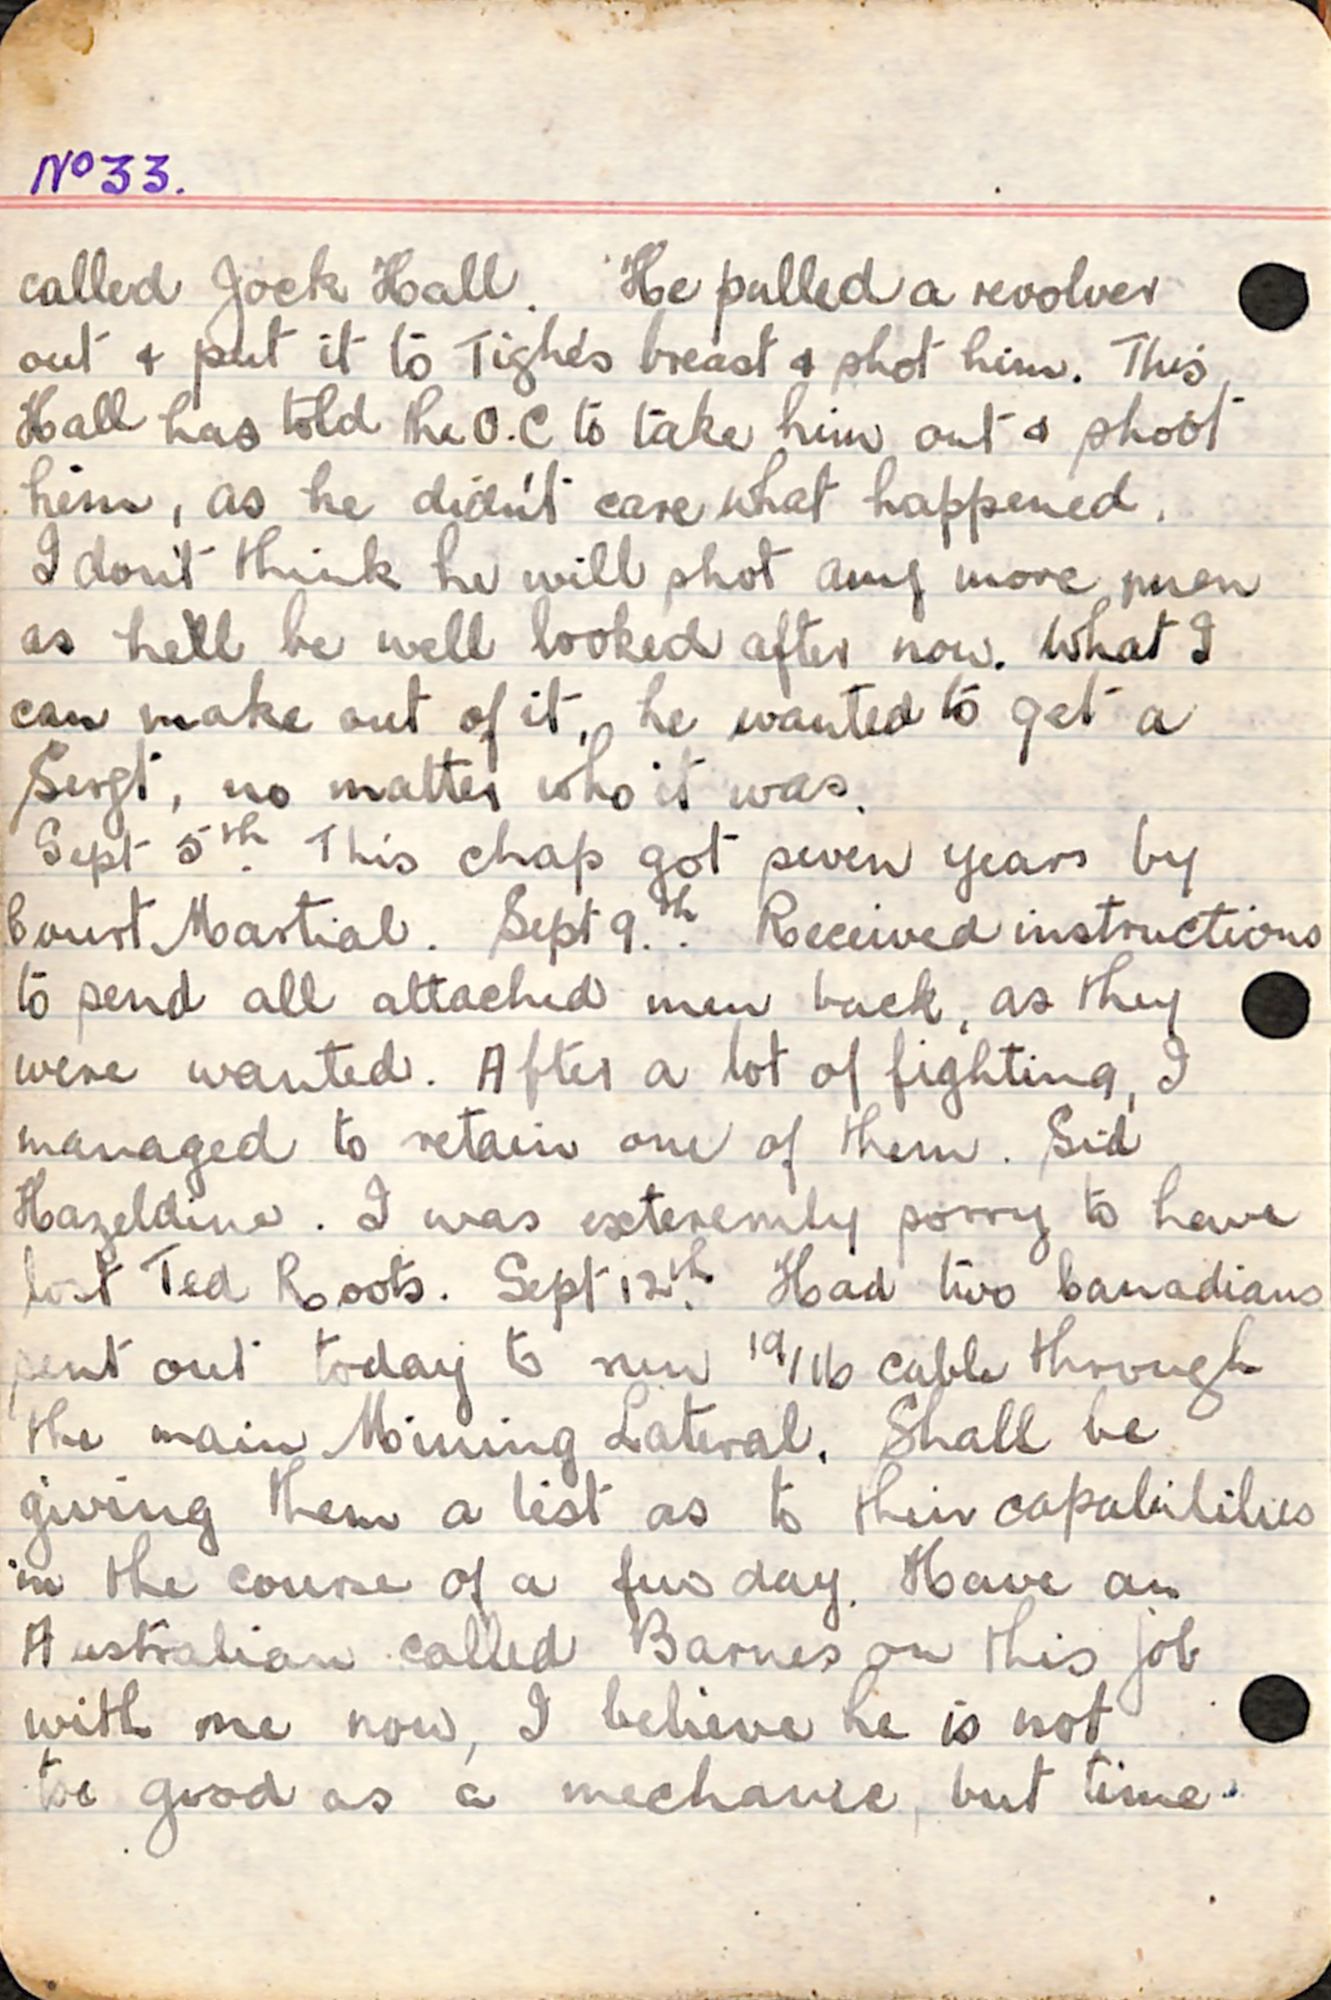 No 33.
called Jock Hall. He pulled a revolver
out & put it to Tighe's breast & shot him. This
Hall has told the O.C to take him out & shoot
him, as he didn't care what happened.
I don't think he will shot any more men
as he'll be well looked after now. What I
can make out of it, he wanted to get a
Sergt, no matter who it was.
Sept 5th. This chap got seven years by
Court Martial. Sept 9th. Received instructions
to send all attached men back, as they
were wanted. After a lot of fighting, I
managed to retain one of them. Sid
Hazeldine. I was exteremly sorry to have
lost Ted Roots. Sept 12th. Had two Canadians
sent out today to run 19/16 cable through
the main Mining Lateral. Shall be
giving them a test as to their capabilities
in the course of a few day. Have an
Australian called Barnes on this job
with me now, I believe he is not
too good as a mechanic, but time